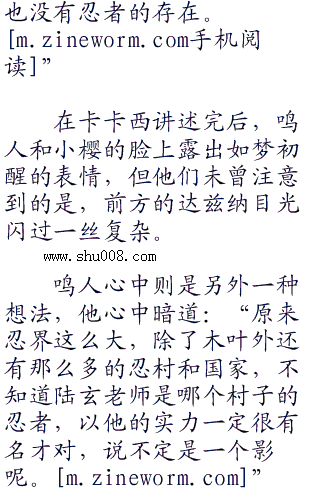 也没有忍者的存在。
[m.zineworm.com手机阅
读]”
在卡卡西讲述完后，鸣
人和小樱的脸上露出如梦初
醒的表情，但他们未曾注意
到的是，前方的达兹纳目光
闪过一丝复杂。
www.shu008.com
鸣人心中则是另外一种
想法，他心中暗道：“原来
忍界这么大，除了木叶外还
有那么多的忍村和国家，不
知道陆玄老师是哪个村子的
忍者，以他的实力一定很有
名才对，说不定是一个影
呢。[m.zineworm.com]”